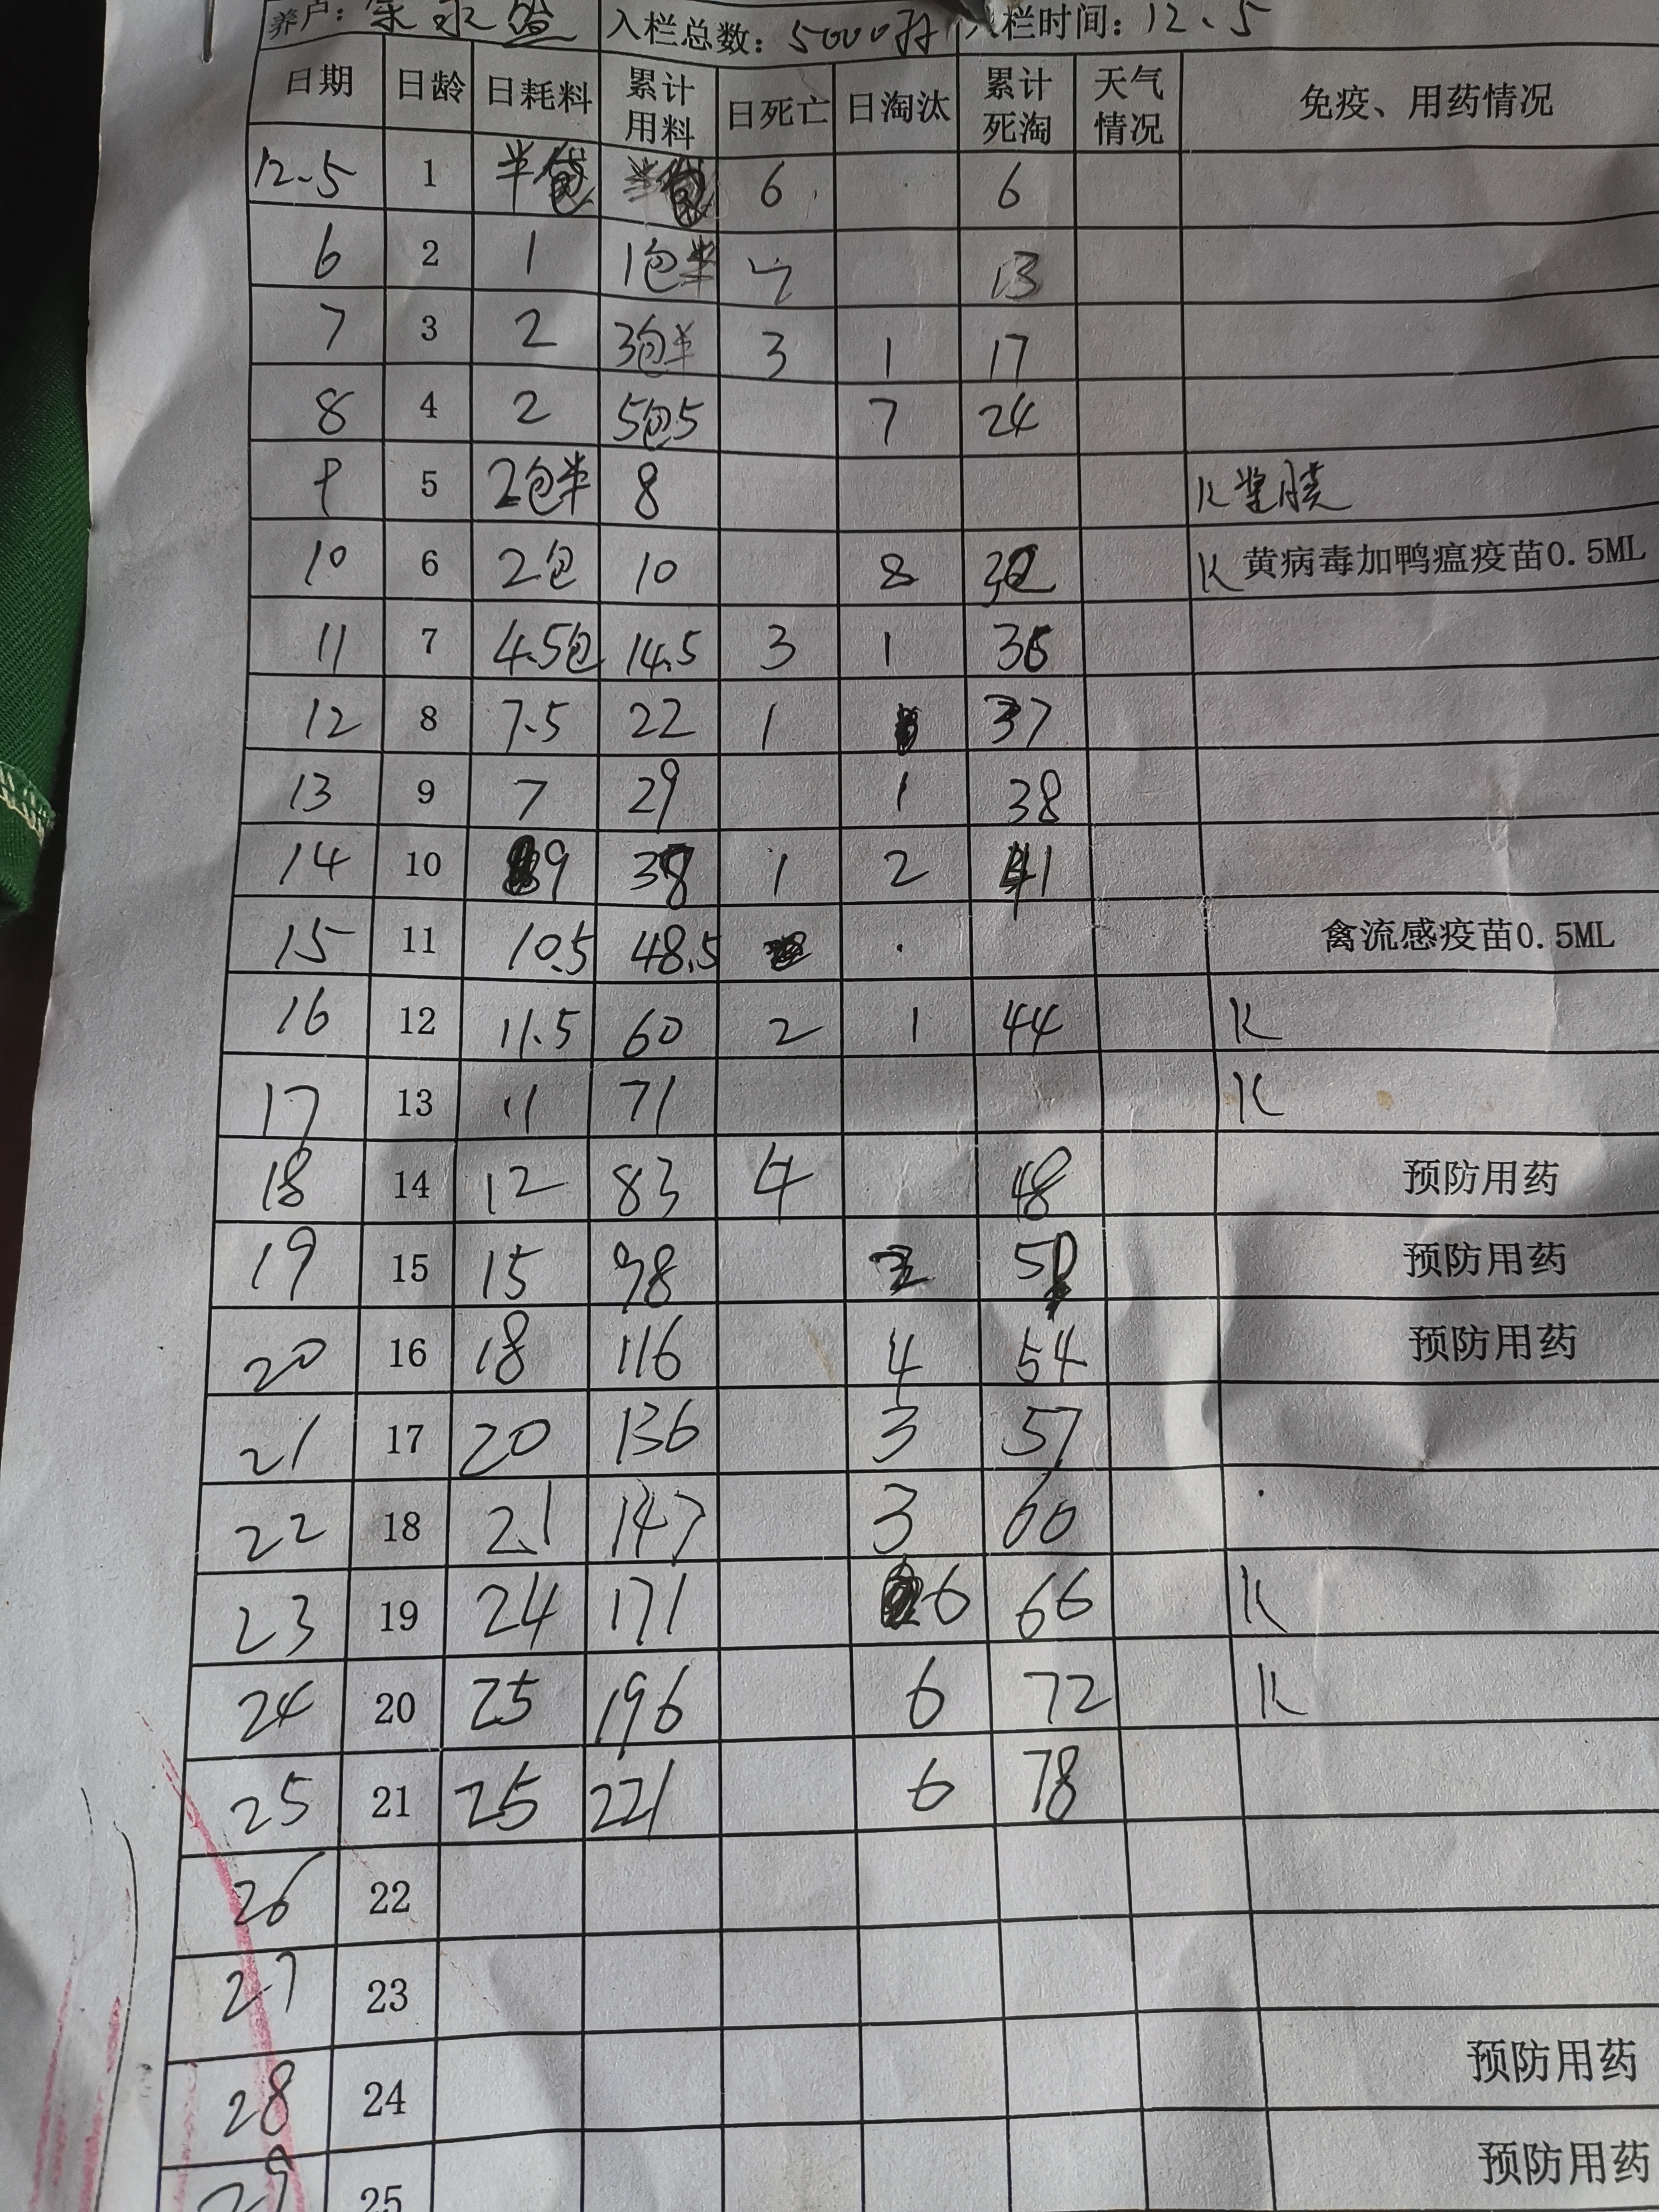 养户: 永 入栏总数: 5000羽 入栏时间: 12.5
日期 日龄 日耗料 累计用料 日死亡 日淘汰 累计死淘 天气情况 免疫、用药情况
12.5 1 半包 半包 6 6
6 2 1 1包半 7 13
7 3 2 3包半 3 1 17
8 4 2 5包5 7 24
9 5 2包半 8 K 浆膜
10 6 2包 10 8 32 K 黄病毒加鸭瘟疫苗0.5ML
11 7 4.5包 14.5 3 1 36
12 8 7.5 22 1 37
13 9 7 29 1 38
14 10 9 38 1 2 41
15 11 10.5 48.5 禽流感疫苗0.5ML
16 12 11.5 60 2 1 44 K
17 13 11 71 K
18 14 12 83 4 48 预防用药
19 15 15 98 2 50 预防用药
20 16 18 116 4 54 预防用药
21 17 20 136 3 57
22 18 21 147 3 60
23 19 24 171 6 66 K
24 20 25 196 6 72 K
25 21 25 221 6 78
26 22
27 23
28 24 预防用药
29 25 预防用药